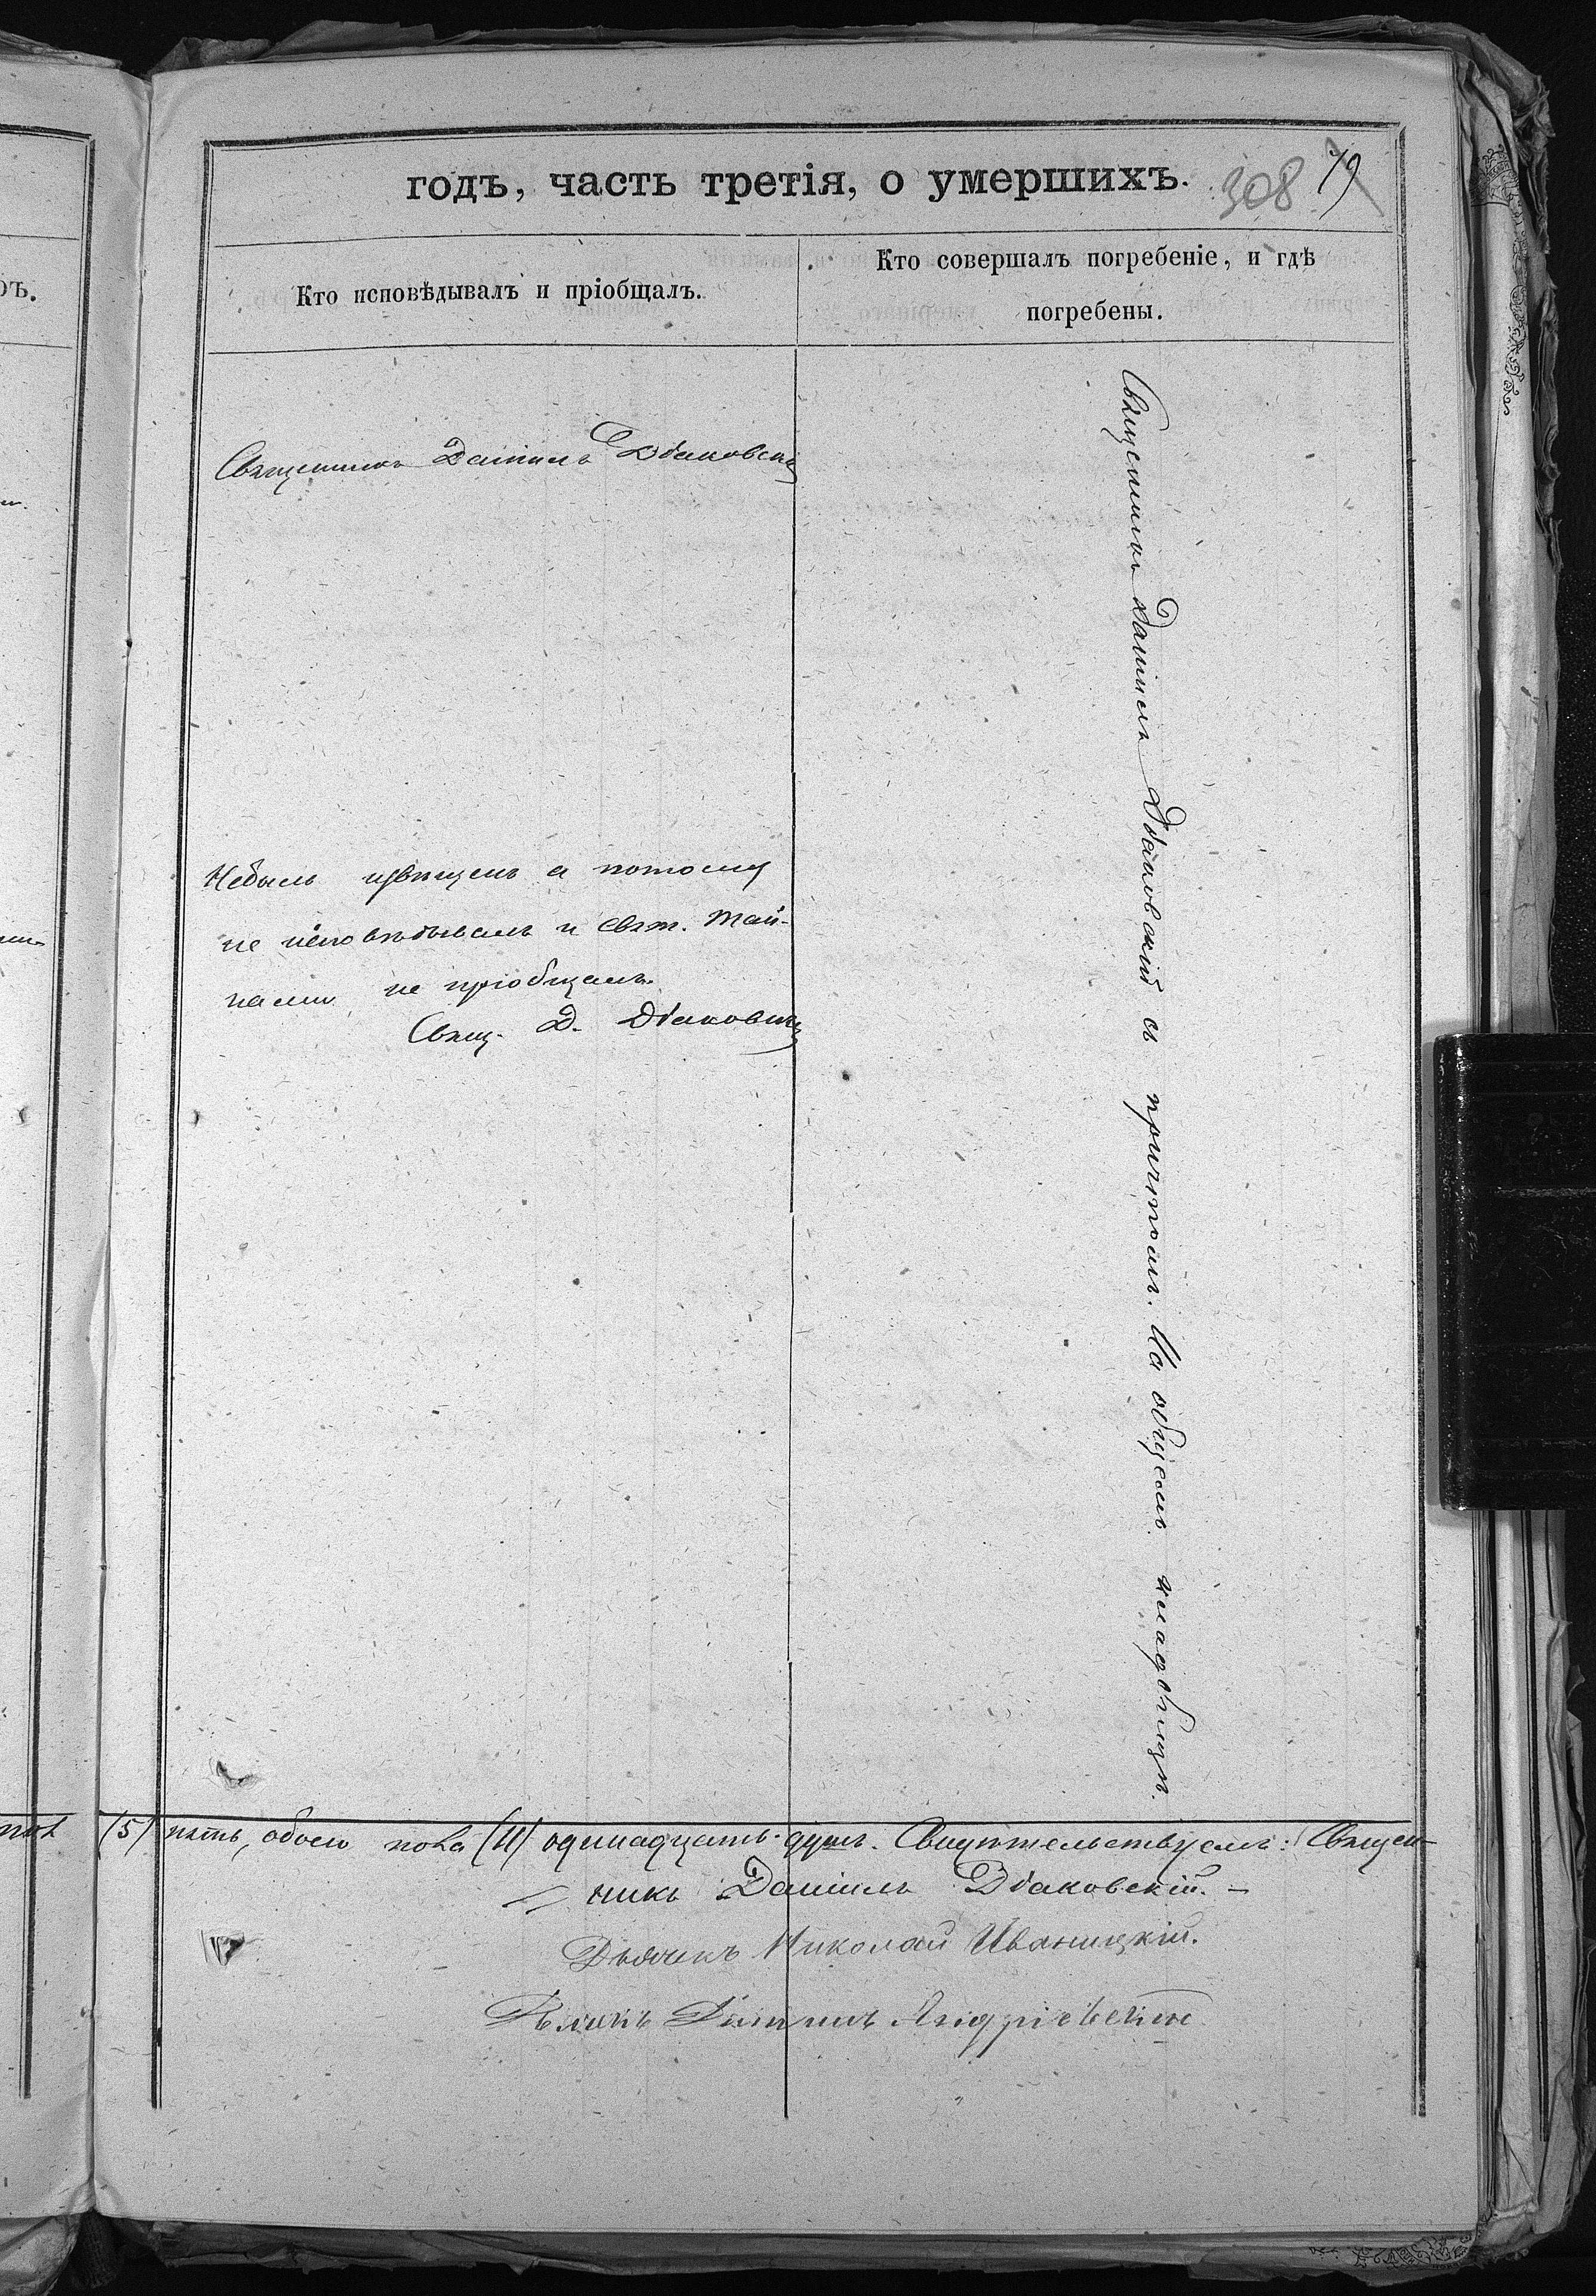 годъ, часть третія, о умершихъ.
308
19
Кто исповѣдывалъ и пріобщалъ.
Кто совершалъ погребеніе, и гдѣ
погребены.
Священникъ Даніилъ Діаковскій
Небылъ извѣщенъ а потому
не исповѣдывалъ и Свят. Тай-
нами не пріобщалъ.
Свящ. Д. Діаковскій
Священникъ Даніилъ Діаковскій съ причтомъ. На общемъ кладбищѣ.
(5) пять, обоего пола (11) одинадцать душъ. Свидѣтельствуемъ: Священ-
никъ Даніилъ Діаковскій. —
Дьячекъ Николай Иваницкій.
Андріевскій